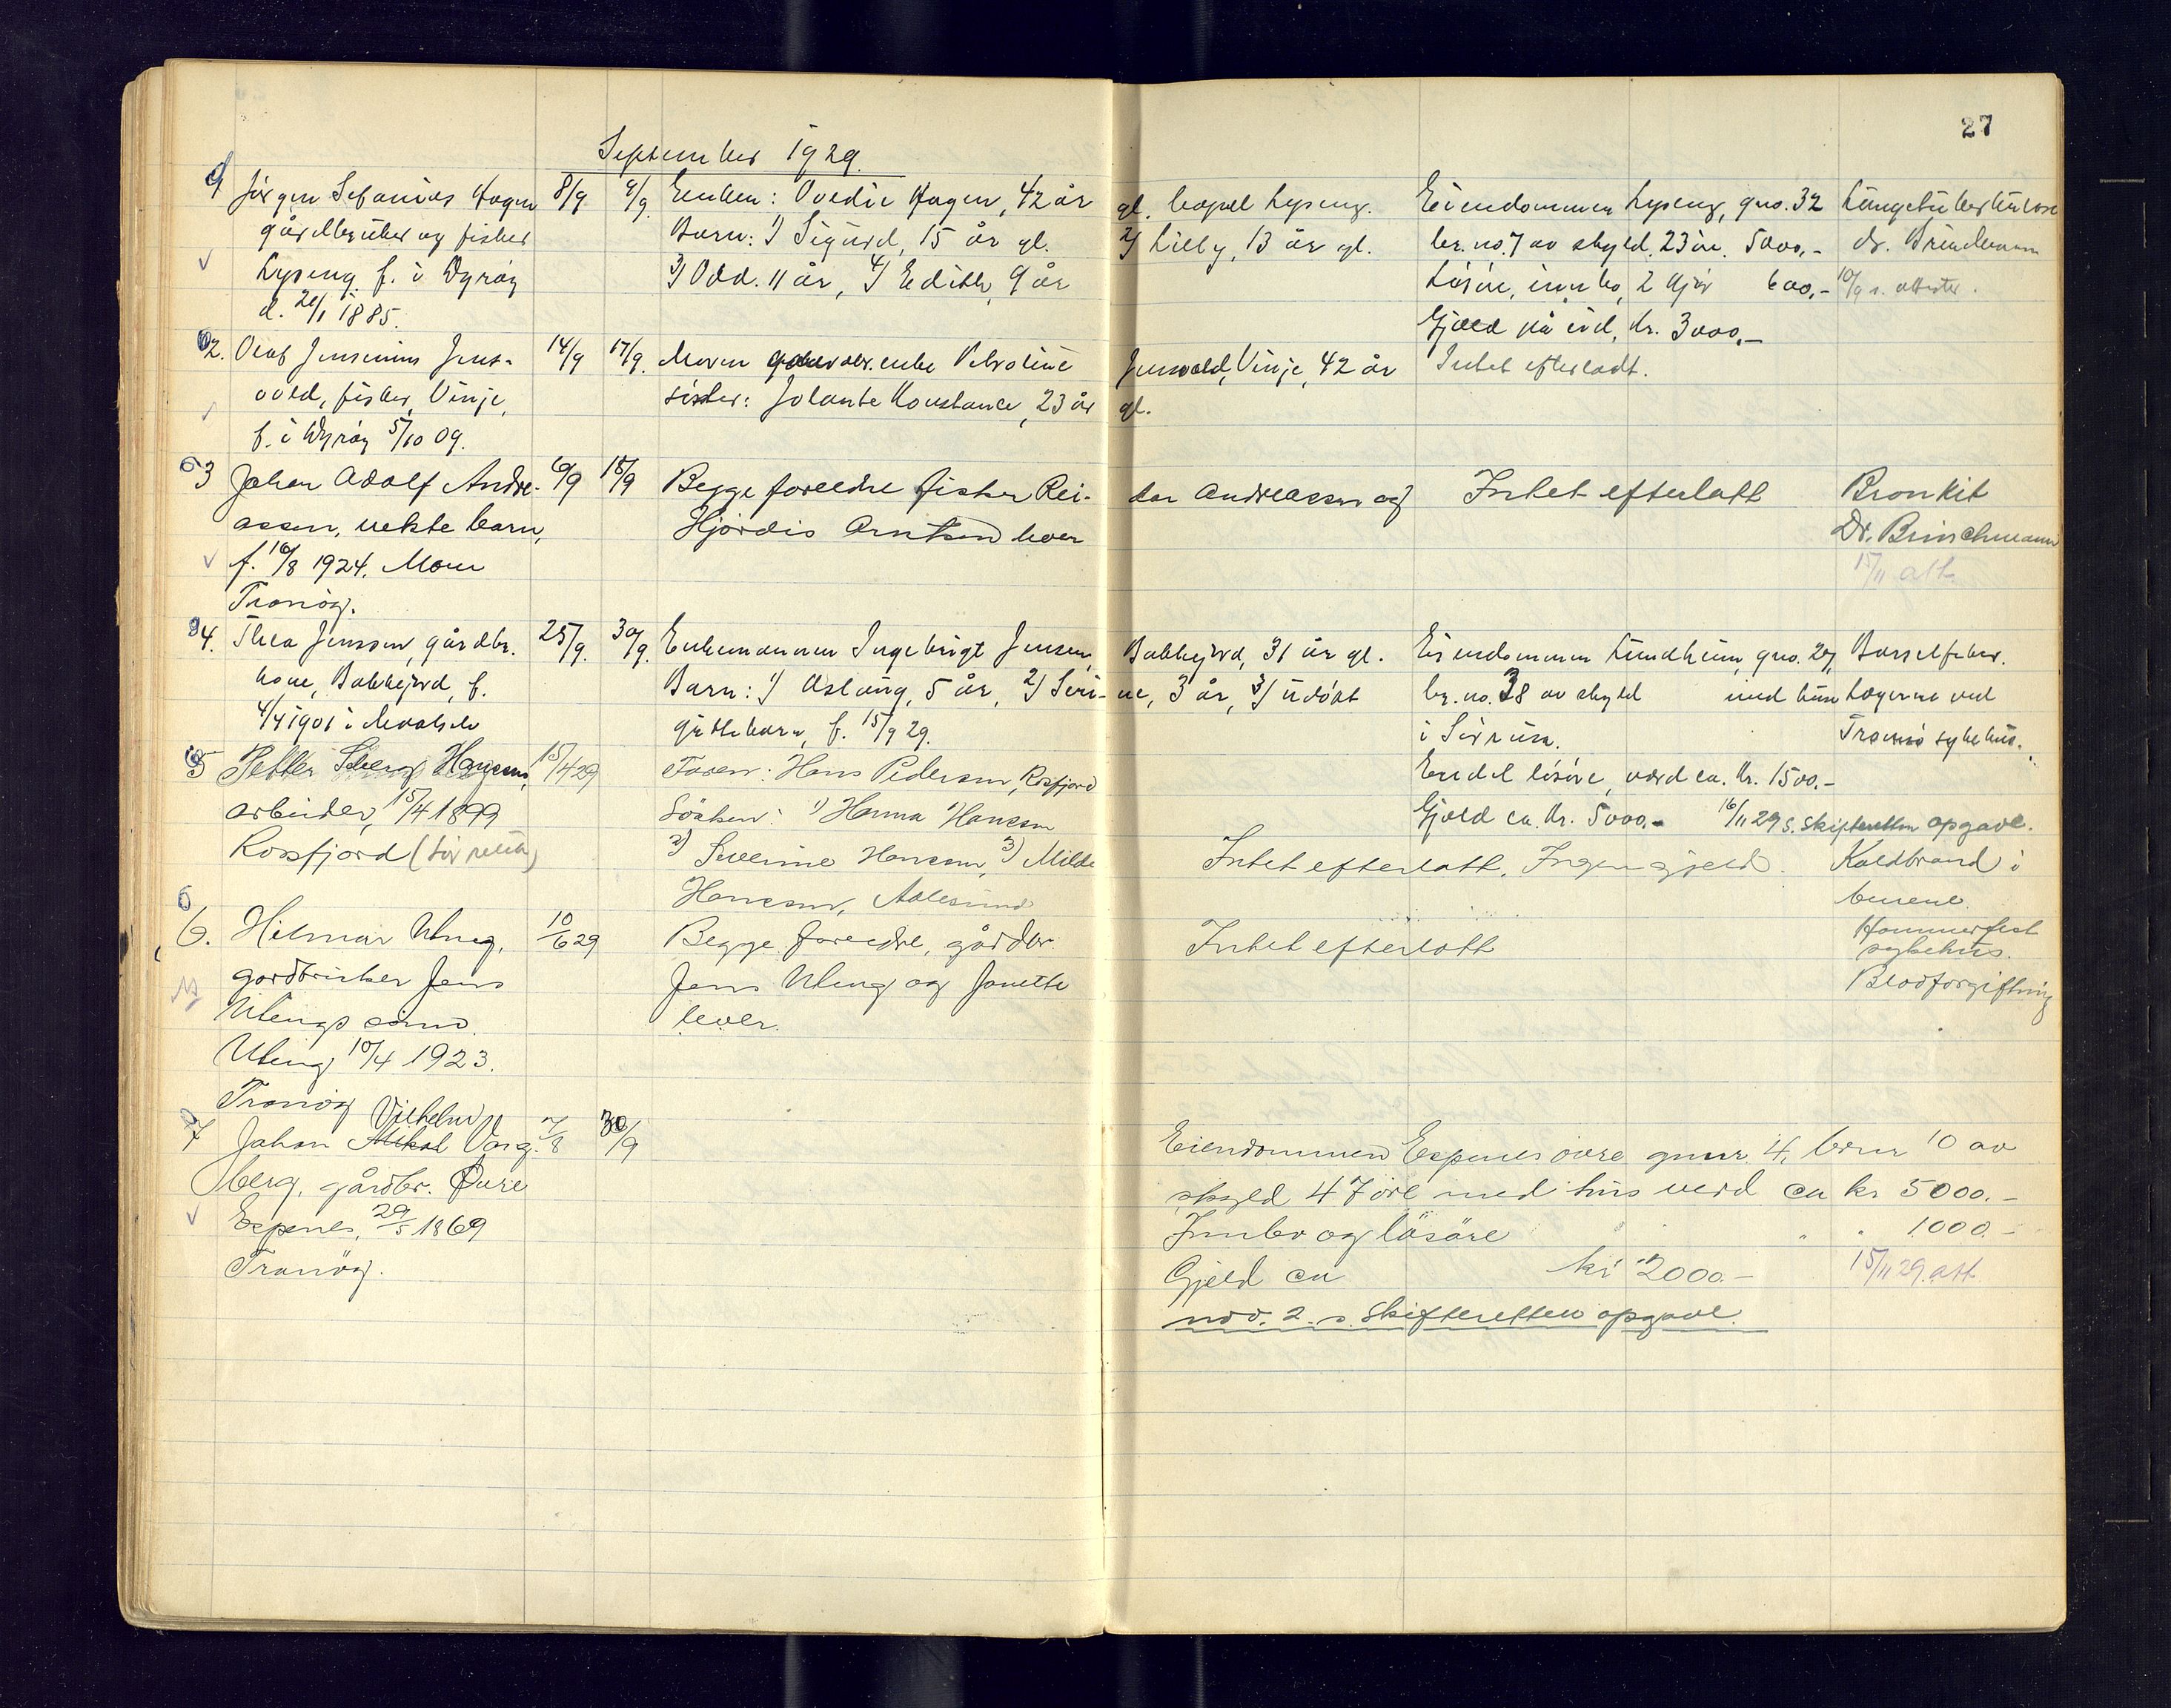 27
September 1929.
1 Jørgen Sefanias Hagen 8/9 9/9. Enken: Ovedie Hagen, 42 år gl. bopel Lyseng. Eiendommen Lyseng, gno. 32 Lungetuberkulose
gårdbruker og fisker Barn: 1) Sigurd, 15 år gl. 2) Lilly, 13 år gl. br. no. 7 av skyld. 23 øre. 5000,- dr. Brinchmann
Lyseng f. i Dyrøy 3) Odd. 11 år, 4) Edith, 9 år Løsøre, innbo, 2 kjør 600,- 10/9 s. attester.
d. 20/1 1885. Gjæld på eied. kr. 3000,-
2. Olaf Jensenius Jens- 14/9 17/9. Moren gårdbr. enke Petroline Jensvold, Vinje, 42 år Intet efterladt.
vold, fisker, Vinje, søster: Jolante Konstance, 23 år gl.
f. i Dyrøy 5/10 09.
3 Johan Adolf Andre- 6/9 18/9 Begge foreldre fisker Rei- dar Andreassen og Intet efterlatt Bronkit
assen, uekte barn, Hjørdis Arntsen lever Dr. Brinchmann
f. 16/8 1924. Moen 15/11 att.
Tranöy.
4. Thea Jensen, gårdbr. 25/9. 30/9. Enkemannen Ingebrigt Jensen, Bakkejord, 31 år gl. Eiendommen Lundheim, gno. 27, Barselfeber.
kone, Bakkejord, f. Barn: 1) Aslaug, 5 år, 2) Seri- ne, 3 år, 3) udøpt br. no. 38 av skyld med hus Lægerne ved
4/4 1901 i Maalselv guttebarn, f. 15/9 29. i Sørreisa. Tromsø sykehus.
En del løsøre, værd ca. kr. 1500.-
5 Petter Hansen, 15/4 29 Faren: Hans Pedersen, Rosfjord Gjæld ca. kr. 5000.- 16/11 29 s. skifteretten opgave.
arbeider, 15/4 1899 Sösken: 1) Hanna Hansen
Rossfjord (Sörreisa) 2) Severine Hansen, 3) Milda Intet efterlatt. Ingen gjeld. Koldbrand i
Hansen, Aalesund benene.
6. Hilmar Uleng, 10/6 29 Begge foreldre, gårdbr. Intet efterlatt Hammerfest
sykehus.
gardbruker Jens Jens Uleng og Janette Blodforgiftning
Ulengs sönn. lever.
Uleng 10/4 1923.
Tranöy
7 Johan Mikal Vilhelm Varg- 7/8 30/9 Eiendommen Espenes övre gnr. 4, brnr 10 av
berg, gårdbr. Övre skyld 47 öre med hus verd ca kr 5000.-
Espenes, 29/5 1869 Innbo og lösöre " " 1000.-
Tranöy. Gjeld ca kr 2000.- 15/11 29. att
nov. 2. s. skifteretten opgave.